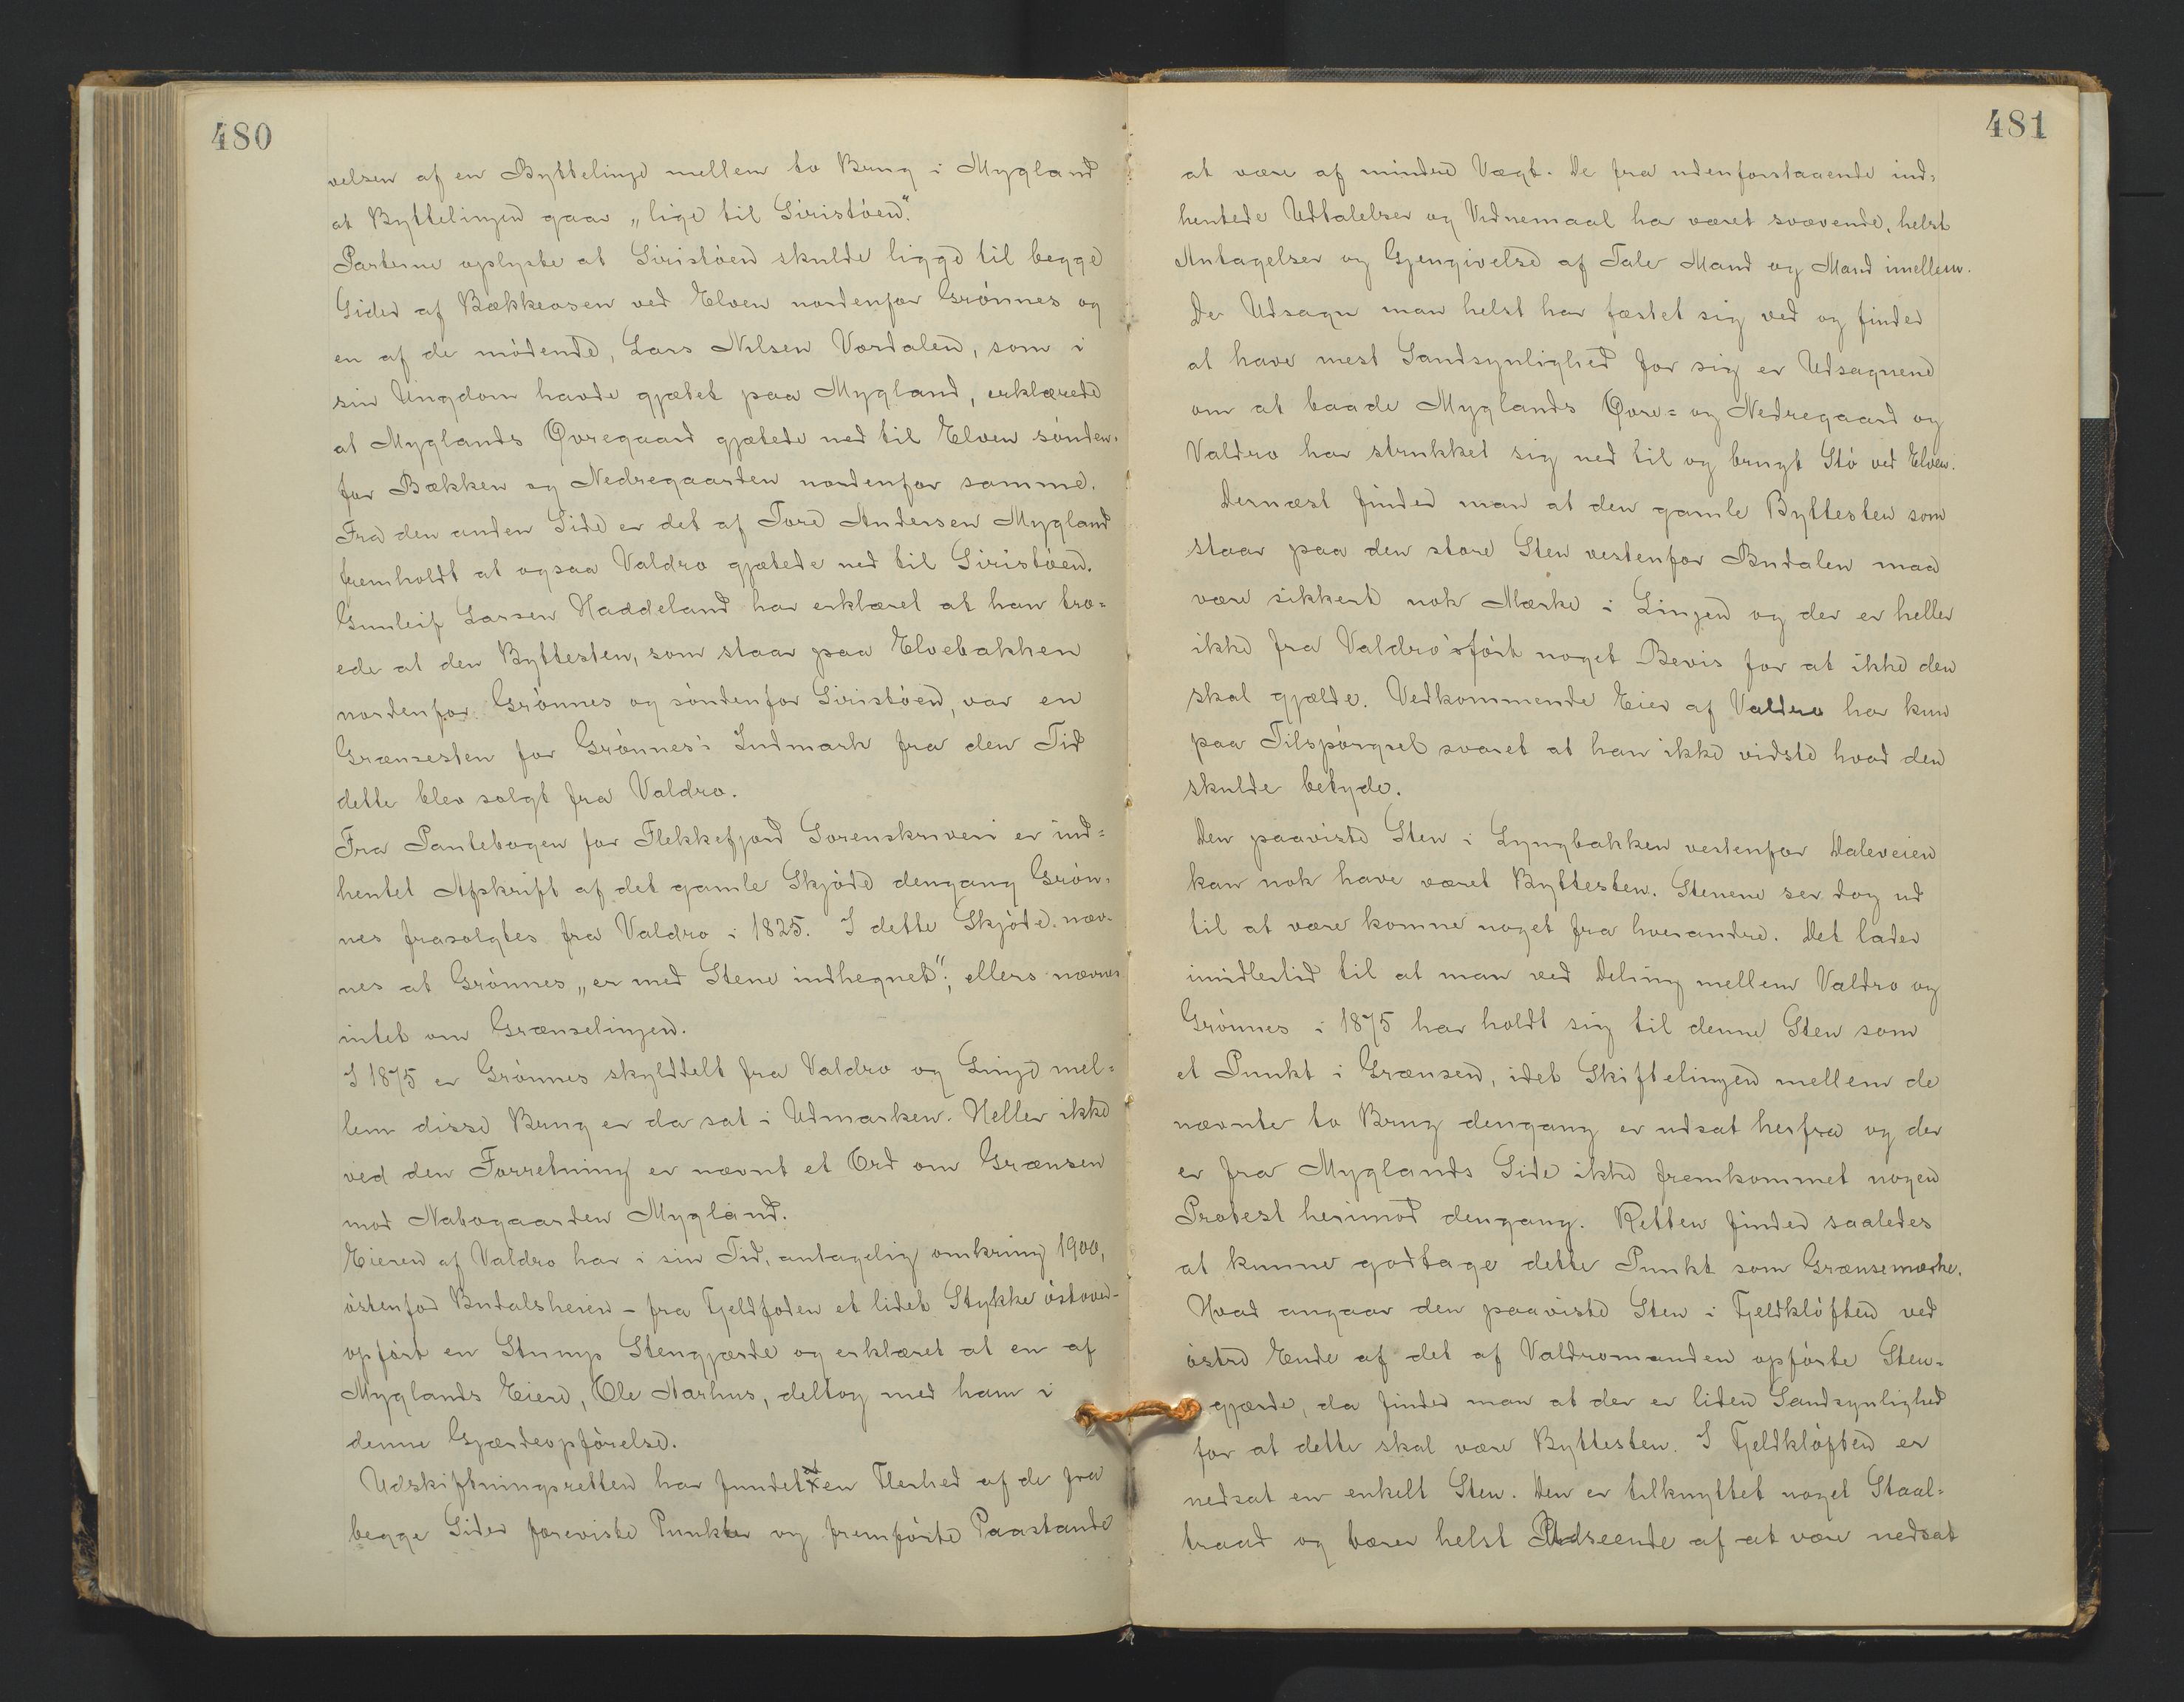 480
velsen af en Byttelinje mellem to Brug i Mygland
at Byttelinjen gaar „lige til Siristöen“.
Parterne oplyste at Siristöen skulde ligge til begge
Sider af Bækkeosen ved Elven nordenfor Grönnes og
en af de mödende, Lars Nilsen Vordalen, som i
sin Ungdom havde gjætet paa Mygland, erklærede
at Myglands Øvregaard gjætede ned til Elven sönden-
for Bækken og Nedregaarden nordenfor samme.
Fra den anden Side er det af Tore Andersen Mygland
fremholdt at ogsaa Valdro gjætede ned til Siristöen.
Gunleif Larsen Haddeland har erklæret at han tro=
ede at den Byttesten, som staar paa Elvebakken
nordenfor Grönnes og söndenfor Siristöen, var en
Grænsesten for Grönnes's Indmark fra den Tid
dette blev solgt fra Valdro.
Fra Pantebogen for Flekkefjord Sorenskriveri er ind=
hentet Afskrift af det gamle Skjöde dengang Grön-
nes frasolgtes fra Valdro i 1825. I dette Skjöde næv-
nes at Grönnes „er med Stene indhegnet“; ellers nævnes
intet om Grænselinjen.
I 1875 er Grönnes skylddelt fra Valdro og Linje mel=
lem disse Brug er da sat i Udmarken. Heller ikke
ved den Forretning er nævnt et Ord om Grænsen
mod Nabogaarden Mygland.
Eieren af Valdro har i sin Tid, antagelig omkring 1900,
östenfor Budalsheien - fra Fjeldfoden et lidet Stykke östover-
opfört en Stump Stengjærde og erklæret at en af
Myglands Eiere, Ole Aarhus, deltog med ham i
denne Gjærdeopförelse.
Udskiftningsretten har fundet en Flerhed af de fra
begge Sider foreviste Punkter og fremförte Paastande
481
at være af mindre Vægt. De fra udenforstaaende ind-
hentede Udtalelser og Vidnemaal har været svævende, helst
Antagelser og Gjengivelse af Tale Mand og Mand imellem.
De Udsagn man helst har fæstet sig ved og finder
at have mest Sandsynlighed for sig er Udsagnene
om at baade Myglands Øvre= og Nedregaard og
Valdro har strukket sig ned til og brugt Stö ved Elven.
Dernæst finder man at den gamle Byttesten som
staar paa den store Sten vestenfor Budalen maa
være sikkert nok Mærke i Linjen og der er heller
ikke fra Valdro's fört noget Bevis for at ikke den
skal gjælde. Vedkommende Eier af Valdro har kun
paa Tilspörgsel svaret at han ikke vidste hvad den
skulde betyde.
Den paaviste Sten i Lyngbakken vestenfor Daleveien
kan nok have været Byttesten. Stenene ser dog ud
til at være komne noget fra hverandre. Det lader
imidlertid til at man ved Deling mellem Valdro og
Grönnes i 1875 har holdt sig til denne Sten som
et Punkt i Grænsen, idet Skiftelinjen mellem de
nævnte to Brug dengang er udsat herfra og der
er fra Myglands Side ikke fremkommet nogen
Protest herimod dengang. Retten finder saaledes
at kunne godtage dette Punkt som Grænsemærke.
Hvad angaar den paaviste Sten i Fjeldklöften ved
östre Ende af det af Valdromanden opförte Sten-
gjærde, da finder man at der er liden Sandsynlighed
for at dette skal være Byttesten. I Fjeldklöften er
nedsat en enkelt Sten. Den er tilknyttet noget Staal-
traad og bærer helst Udseende af at være nedsat